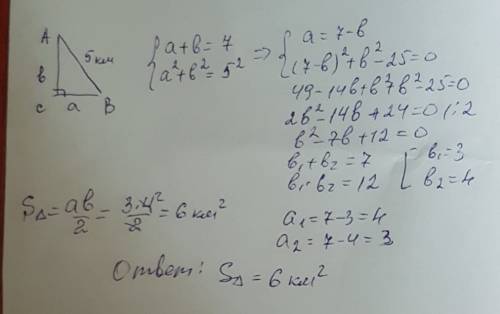 A
5 км
в
c a B
{ a+в = 7
a²+в² = 5²
=> { a = 7-в
(7-в)²+в²-25=0
49-14в+в²+в²-25=0
2в²-14в+24=0 |:2
в²-7в+12=0
в₁+в₂=7
в₁·в₂=12
[ в₁=3
в₂=4
a₁=7-3=4
a₂=7-4=3
S△=aв/2=3·4²/2=6 км²
Ответ: S△=6 км²